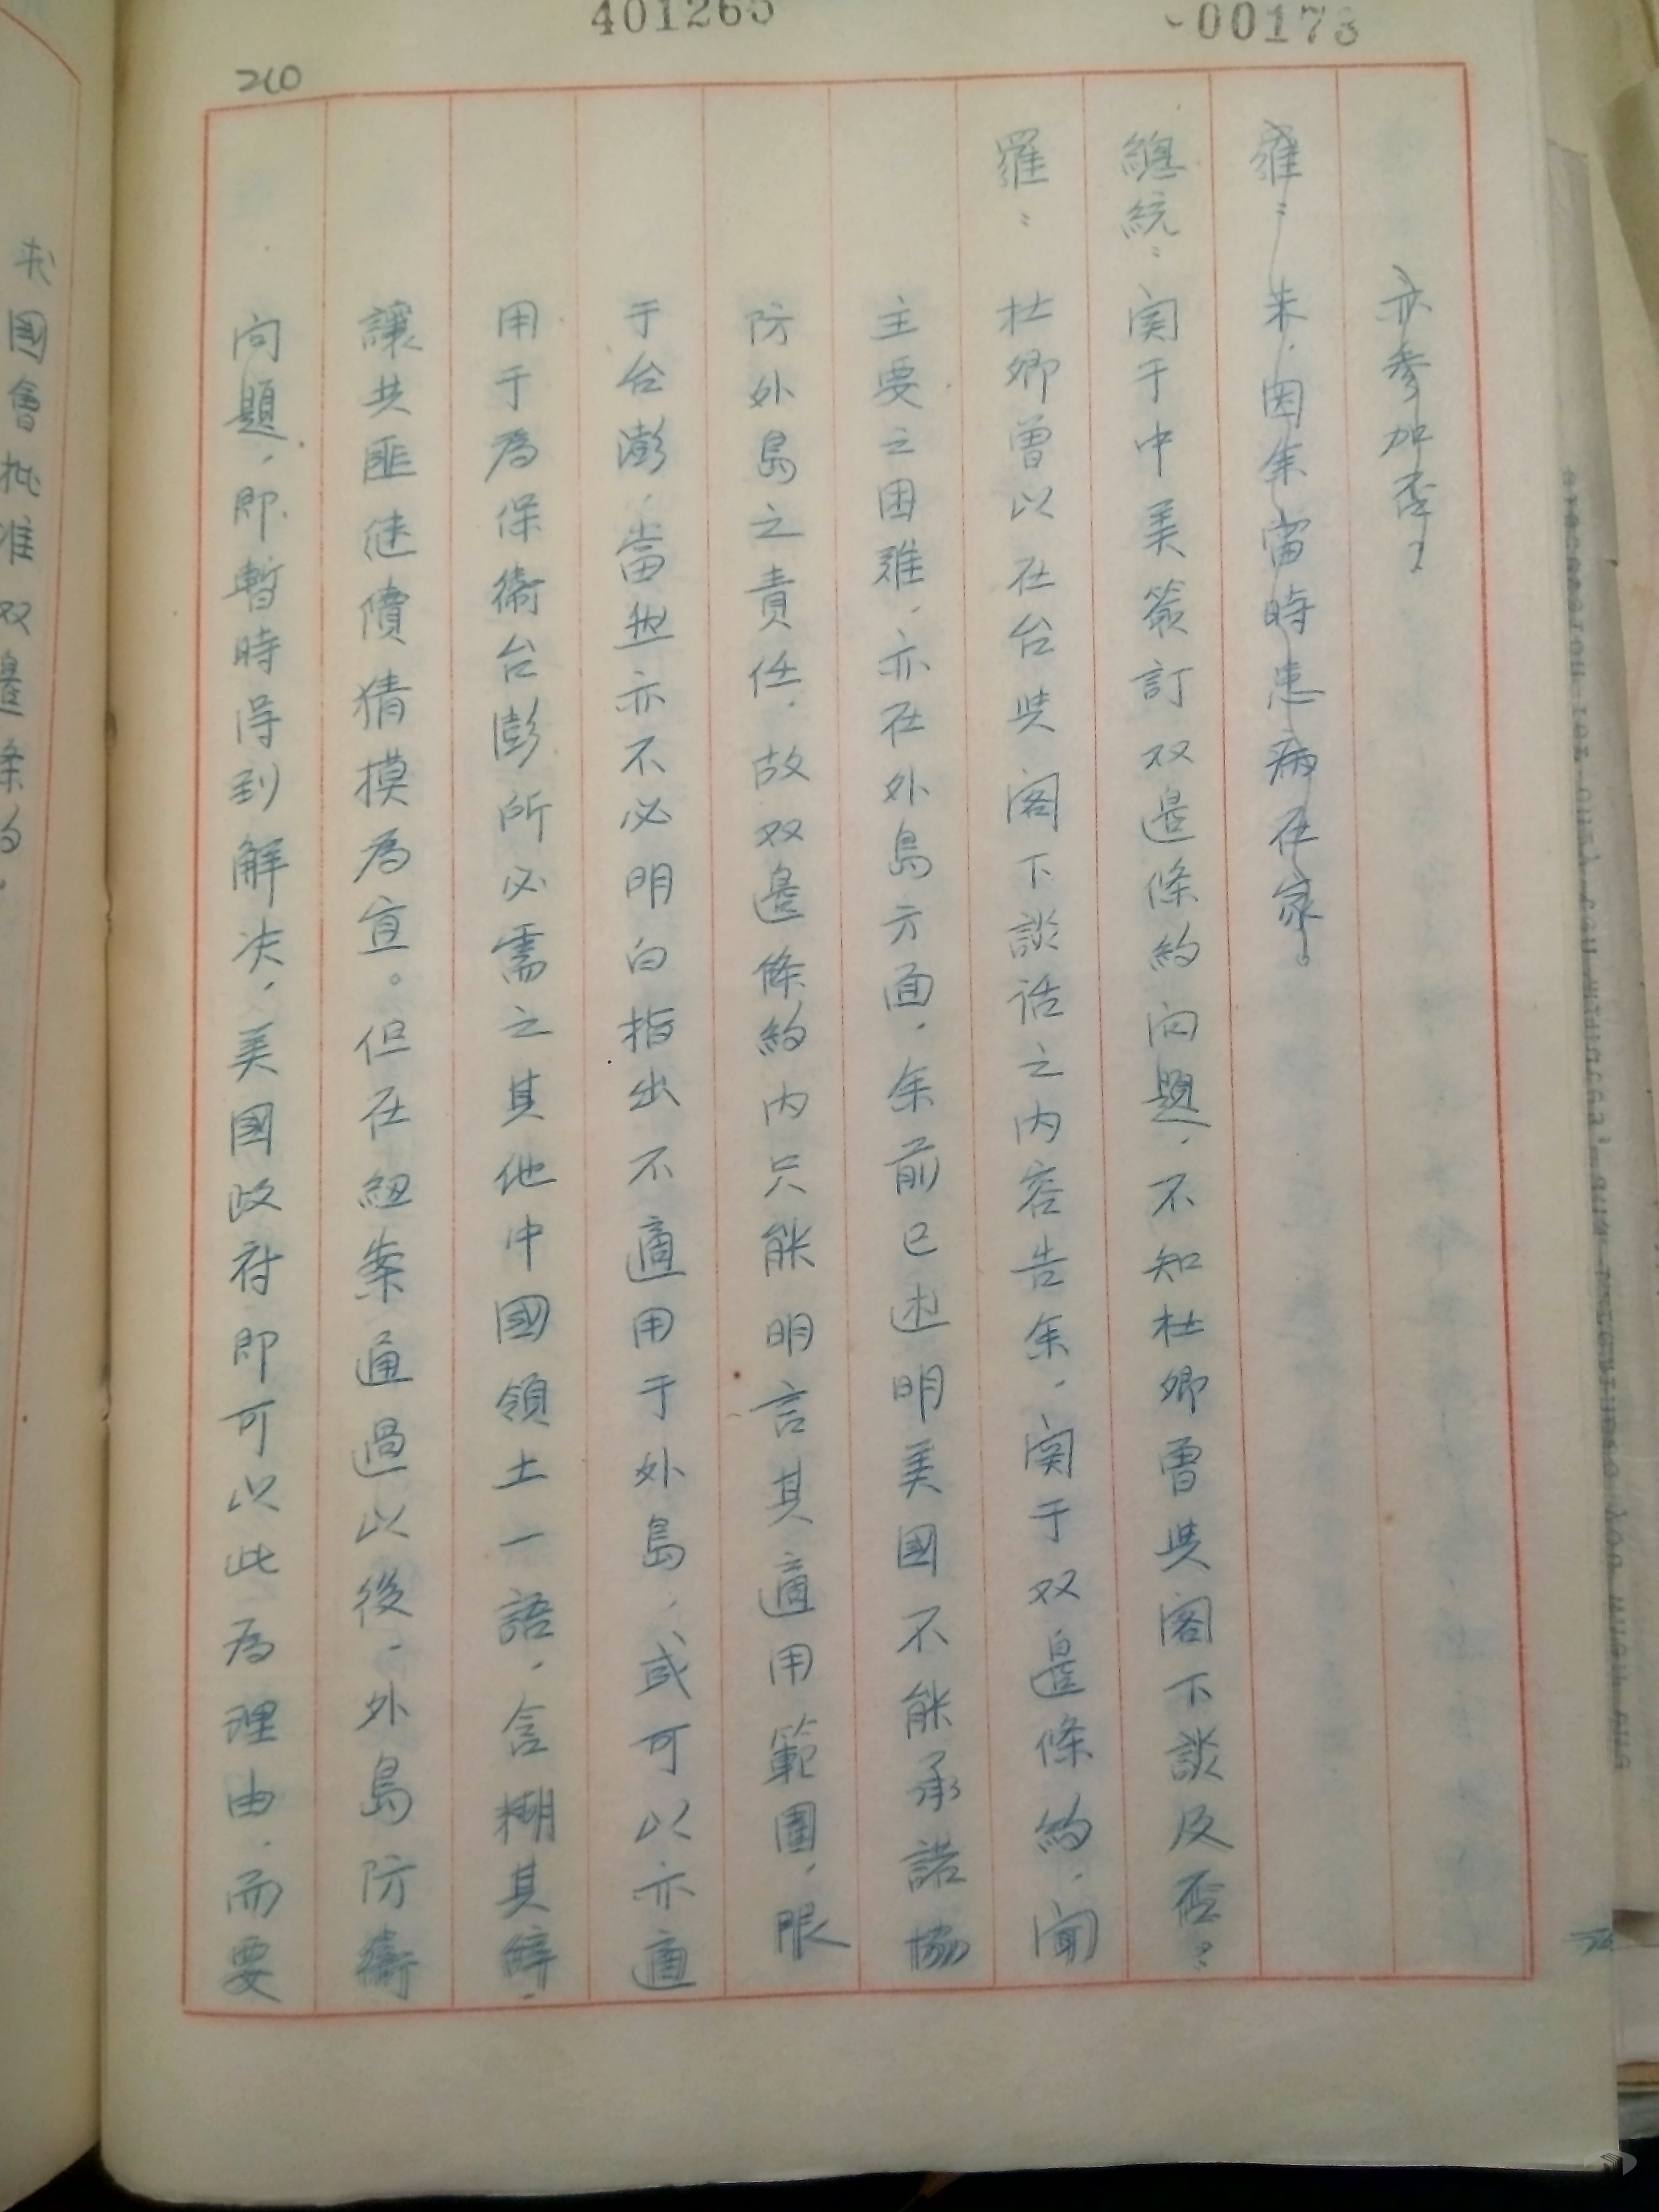 401265
-00173
210
亦參加否？
羅：未，因余當時患病在家。
總統：関于中美簽訂双邊條約问題，不知杜卿曾與閣下談及否？
羅：杜卿曾以在台與閣下談话之内容告余，関于双邊條約，闻
主要之困难，亦在外島方面，余前已述明美國不能承諾協
防外島之責任，故双邊條約内只能明言其適用範圍，限
于台澎，當然亦不必明白指出不適用于外島，或可以亦適
用于為保衛台澎所必需之其他中國領土一語，含糊其辞，
讓共匪继續猜摸為宜。但在紐案通過以後，外島防衛
问題，即暫時得到解决，美國政府即可以此為理由，而要
求國會批准双邊條約，